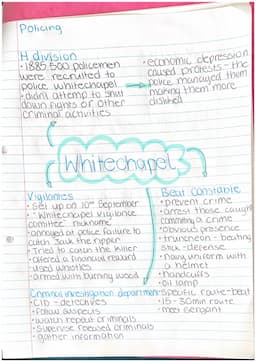 Policing
H division
• 1885, 500 policemen
were recruited to
police whitechapel
• didnt attemp to shut
down fights or other
criminal activities
• economic depression
caused protests - the
police managed them
making them more
disliked
Whitechapel
Vigilantes
• set up on 10th September
• "Whitechapel vigilance
comittee" nickname
• annoyed at police failure to
catch Jack the ripper
• Tried to catch the killer
• offered a financial reward
• used whistles
• armed with burning wood
Beat Constable
• prevent crime
• arrest those caught
commiting a crime
• obvious presence
• truncheon - beating
stick - defense
• navy uniform with
a helmet
• handcuffs
• oil lamp
• specific route - beat
• 15 - 30min route
• meet sergant
Criminal investigation department
• CID - detectives
• follow suspects
• watch repeat criminals
• supervise released criminals
• gather information